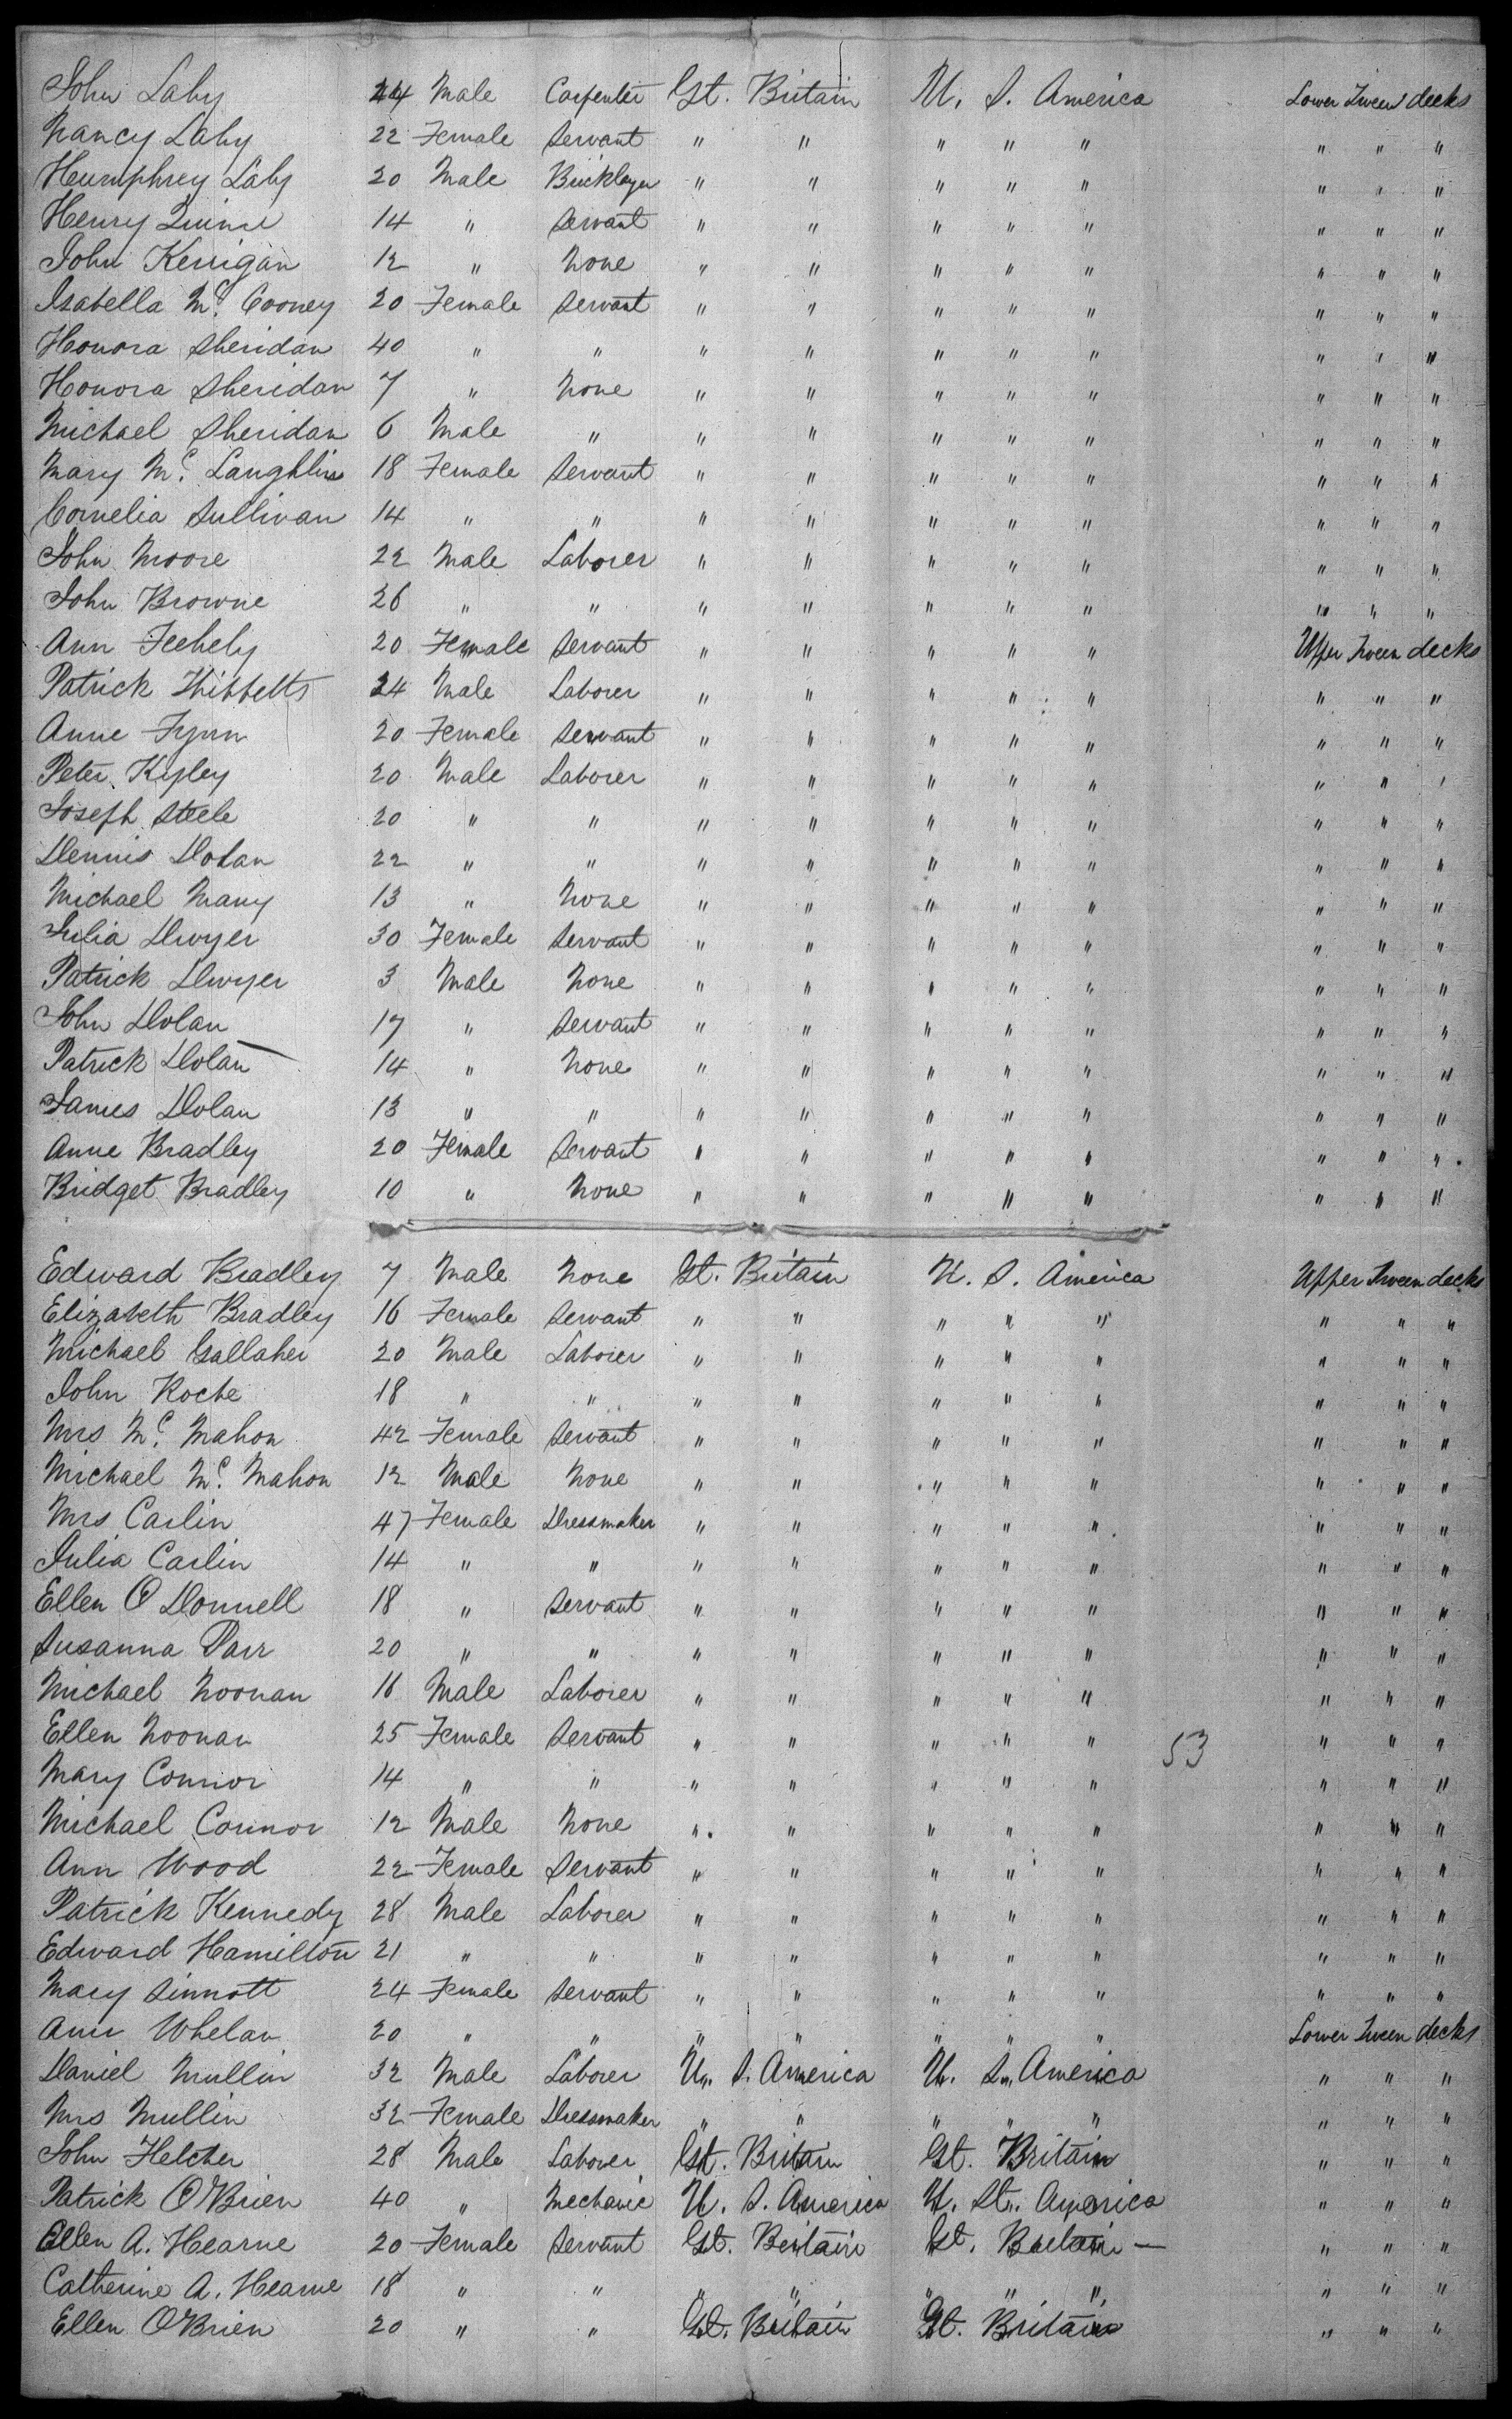 John Lahy 24 Male Carpenter Gt. Britain U. S. America Lower Tween decks
Nancy Lahy 22 Female Servant " " " " " " " "
Humphrey Lahy 20 Male Bricklayer " " " " " " " "
Henry Quinn 14 " Servant " " " " " " " "
John Kerrigan 12 " None " " " " " " " "
Isabella Mc. Cooney 20 Female Servant " " " " " " " "
Honora Sheridan 40 " " " " " " " " " "
Honora Sheridan 7 " None " " " " " " " "
Michael Sheridan 6 Male " " " " " " " " "
Mary Mc. Laughlin 18 Female Servant " " " " " " " "
Cornelia Sullivan 14 " " " " " " " " " "
John Moore 22 Male Laborer " " " " " " " "
John Browne 26 " " " " " " " " " "
Ann Feehely 20 Female Servant " " " " " Upper Tween decks
Patrick Thibbetts 24 Male Laborer " " " " " " " "
Anne Fynn 20 Female Servant " " " " " " " "
Peter Kyley 20 Male Laborer " " " " " " " "
Joseph Steele 20 " " " " " " " " " "
Dennis Dolan 22 " " " " " " " " " "
Michael Many 13 " None " " " " " " " "
Julia Dwyer 30 Female Servant " " " " " " " "
Patrick Dwyer 3 Male None " " " " " " " "
John Dolan 17 " Servant " " " " " " " "
Patrick Dolan 14 " None " " " " " " " "
James Dolan 13 " " " " " " " " " "
Anne Bradley 20 Female Servant " " " " " " " "
Bridget Bradley 10 " None " " " " " " " "
Edward Bradley 7 Male None Gt. Britain U. S. America Upper Tween decks
Elizabeth Bradley 16 Female Servant " " " " " " " "
Michael Gallaher 20 Male Laborer " " " " " " " "
John Roche 18 " " " " " " " " " "
Mrs Mc. Mahon 42 Female Servant " " " " " " " "
Michael Mc. Mahon 12 Male None " " " " " " " "
Mrs Carlin 47 Female Dressmaker " " " " " " " "
Julia Carlin 14 " " " " " " " " " "
Ellen O Donnell 18 " Servant " " " " " " " "
Susanna Parr 20 " " " " " " " " " "
Michael Noonan 16 Male Laborer " " " " " " " "
Ellen Noonan 25 Female Servant " " " " " 53 " " "
Mary Connor 14 " " " " " " " " " "
Michael Connor 12 Male None " " " " " " " "
Ann Wood 22 Female Servant " " " " " " " "
Patrick Kennedy 28 Male Laborer " " " " " " " "
Edward Hamilton 21 " " " " " " " " " "
Mary Sinnott 24 Female Servant " " " " " " " "
Ann Whelan 20 " " " " " " " Lower Tween decks
Daniel Mullin 32 Male Laborer U. S. America U. S. America " " "
Mrs Mullin 32 Female Dressmaker " " " " " " " "
John Fletcher 28 Male Laborer Gt. Britain Gt. Britain " " "
Patrick O'Brien 40 " Mechanic U. S. America U. St. America " " "
Ellen A. Hearne 20 Female Servant Gt. Britain Gt. Britain — " " "
Catherine A. Hearne 18 " " " " " " " " " "
Ellen O'Brien 20 " " Gt. Britain Gt. Britain " " "